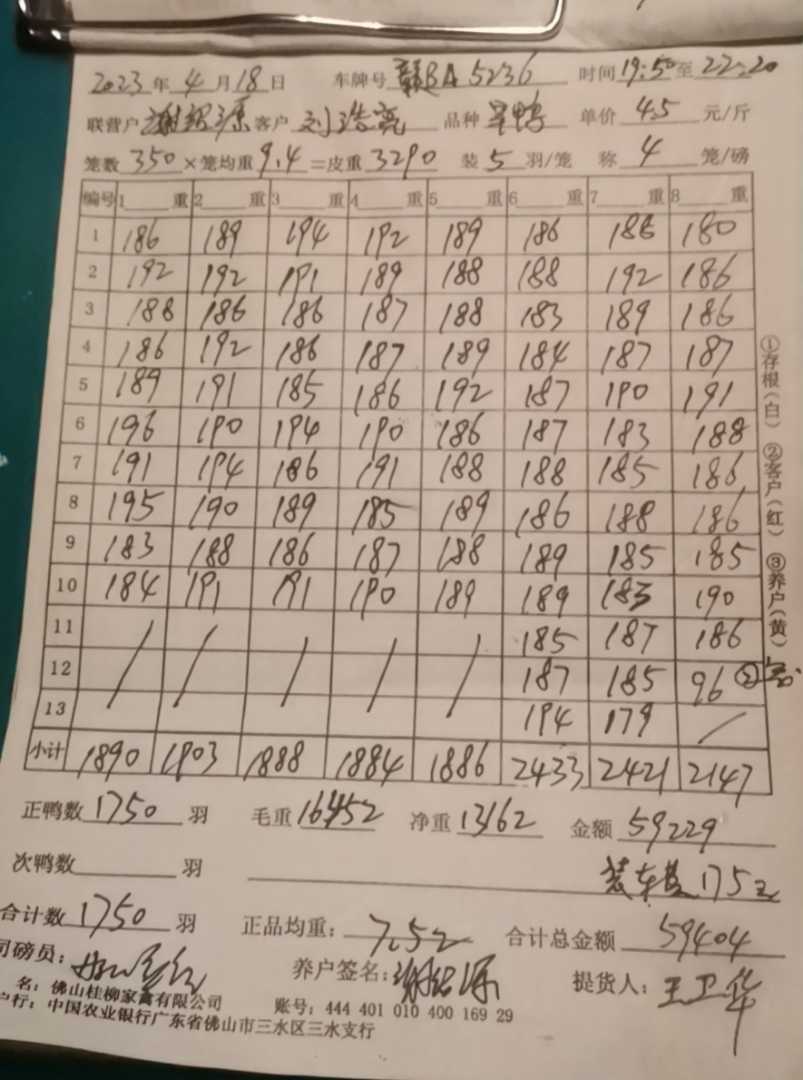 2023年4月18日 车牌号 赣BA5236 时间19:50至22:20
联营户 谢绍源 客户 刘浩亮 品种 单价 4.5 元/斤
笼数 350 ×笼均重 9.4 =皮重 3290 装 5 羽/笼 称 4 笼/磅
编号 1 重 2 重 3 重 4 重 5 重 6 重 7 重 8 重
1 186 189 194 192 189 186 186 180
2 192 192 191 189 188 188 192 186
3 188 186 186 187 188 183 189 186
4 186 192 186 187 189 184 187 187
5 189 191 185 186 192 187 190 191
6 196 190 194 190 186 187 183 188
7 191 194 186 191 188 188 185 186
8 195 190 189 185 189 186 188 186
9 183 188 186 187 188 189 185 185
10 184 191 191 190 189 189 183 190
11 / / / / / 185 187 186
12 187 185 96 ②
13 194 179 /
小计 1890 1903 1888 1884 1886 2433 2421 2147
①存根(白) ②客户(红) ③养户(黄)
正鸭数 1750 羽 毛重 16452 净重 13162 金额 59229
次鸭数 羽 装车费 175元
合计数 1750 羽 正品均重: 7.52 合计总金额 59404
司磅员: 养户签名: 谢绍源 提货人: 王卫华
名: 佛山桂柳家禽有限公司 账号: 444 401 010 400 169 29
户行: 中国农业银行广东省佛山市三水区三水支行